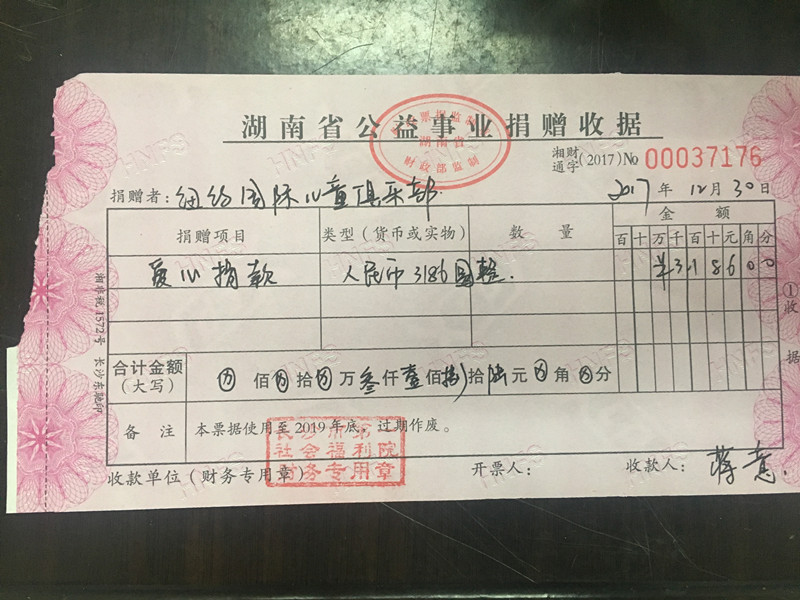 湖南省公益事业捐赠收据
湖南省
财政部监制
湘财通字(2017) No 00037176
捐赠者: 纽约国际儿童俱乐部 2017年12月30日
捐赠项目 类型(货币或实物) 数量 金额
百十万千百十元角分
爱心捐款 人民币3186圆整. ¥318600
合计金额(大写) 佰 拾 万叁仟壹佰捌拾陆元 角 分
备注 本票据使用至2019年底,过期作废。
社会福利院
财务专用章
收款单位(财务专用章) 开票人: 收款人:
①收据
湘非税1572号
HNFS